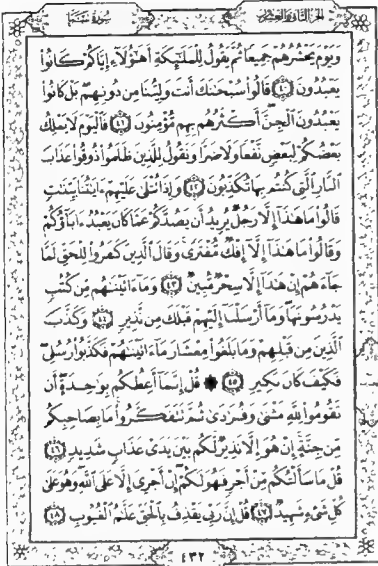 الجزء الثاني والعشرون سورة سبإ
وَيَوْمَ يَحْشُرُهُمْ جَمِيعًا ثُمَّ يَقُولُ لِلْمَلَٰٓئِكَةِ أَهَٰٓؤُلَآءِ إِيَّاكُمْ كَانُوا۟
يَعْبُدُونَ ٤٠ قَالُوا۟ سُبْحَٰنَكَ أَنتَ وَلِيُّنَا مِن دُونِهِم بَلْ كَانُوا۟
يَعْبُدُونَ ٱلْجِنَّ أَكْثَرُهُم بِهِم مُّؤْمِنُونَ ٤١ فَٱلْيَوْمَ لَا يَمْلِكُ
بَعْضُكُمْ لِبَعْضٍ نَّفْعًا وَلَا ضَرًّا وَنَقُولُ لِلَّذِينَ ظَلَمُوا۟ ذُوقُوا۟ عَذَابَ
ٱلنَّارِ ٱلَّتِى كُنتُم بِهَا تُكَذِّبُونَ ٤٢ وَإِذَا تُتْلَىٰ عَلَيْهِمْ ءَايَٰتُنَا بَيِّنَٰتٍ
قَالُوا۟ مَا هَٰذَآ إِلَّا رَجُلٌ يُرِيدُ أَن يَصُدَّكُمْ عَمَّا كَانَ يَعْبُدُ ءَابَآؤُكُمْ
وَقَالُوا۟ مَا هَٰذَآ إِلَّآ إِفْكٌ مُّفْتَرًى وَقَالَ ٱلَّذِينَ كَفَرُوا۟ لِلْحَقِّ لَمَّا
جَآءَهُمْ إِنْ هَٰذَآ إِلَّا سِحْرٌ مُّبِينٌ ٤٣ وَمَآ ءَاتَيْنَٰهُم مِّن كُتُبٍ
يَدْرُسُونَهَا وَمَآ أَرْسَلْنَآ إِلَيْهِمْ قَبْلَكَ مِن نَّذِيرٍ ٤٤ وَكَذَّبَ
ٱلَّذِينَ مِن قَبْلِهِمْ وَمَا بَلَغُوا۟ مِعْشَارَ مَآ ءَاتَيْنَٰهُمْ فَكَذَّبُوا۟ رُسُلِى
فَكَيْفَ كَانَ نَكِيرِ ٤٥ ۞ قُلْ إِنَّمَآ أَعِظُكُم بِوَٰحِدَةٍ أَن
تَقُومُوا۟ لِلَّهِ مَثْنَىٰ وَفُرَٰدَىٰ ثُمَّ تَتَفَكَّرُوا۟ مَا بِصَاحِبِكُم
مِّن جِنَّةٍ إِنْ هُوَ إِلَّا نَذِيرٌ لَّكُم بَيْنَ يَدَىْ عَذَابٍ شَدِيدٍ ٤٦
قُلْ مَا سَأَلْتُكُم مِّنْ أَجْرٍ فَهُوَ لَكُمْ إِنْ أَجْرِىَ إِلَّا عَلَى ٱللَّهِ وَهُوَ عَلَىٰ
كُلِّ شَىْءٍ شَهِيدٌ ٤٧ قُلْ إِنَّ رَبِّى يَقْذِفُ بِٱلْحَقِّ عَلَّٰمُ ٱلْغُيُوبِ ٤٨
٤٣٢